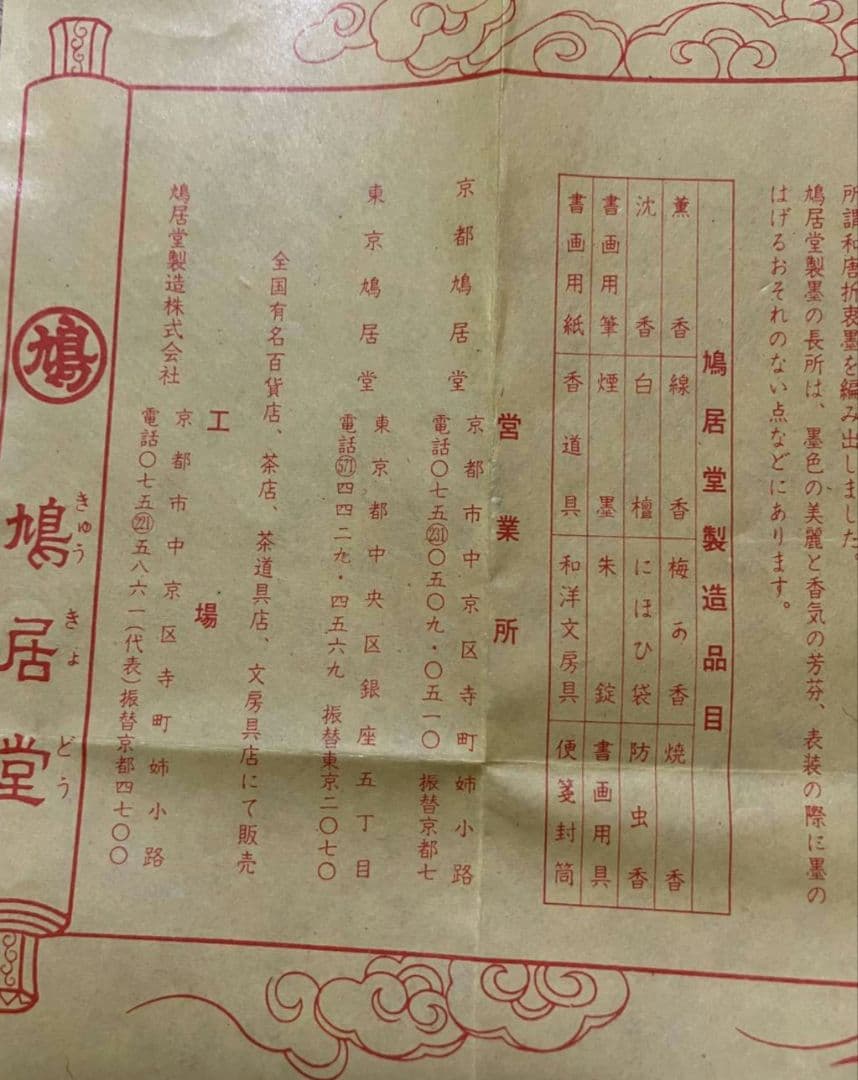 所謂和唐折衷墨を編み出しました。
鳩居堂製墨の長所は、墨色の美麗と香気の芳芬、表装の際に墨の
はげるおそれのない点などにあります。
鳩居堂製造品目
薫香 線香 梅の香 焼香
沈香 白檀 にほひ袋 防虫香
書画用筆 煙墨 朱錠 書画用具
書画用紙 香道具 和洋文房具 便箋封筒
営業所
京都鳩居堂 京都市中京区寺町姉小路
電話〇七五(231)〇五〇九・〇五一〇 振替京都七
東京鳩居堂 東京都中央区銀座五丁目
電話(571)四四二九・四五六九 振替東京二〇七〇
全国有名百貨店、茶店、茶道具店、文房具店にて販売
工場
鳩居堂製造株式会社 京都市中京区寺町姉小路
電話〇七五(221)五八六一(代表)振替京都四七〇〇
鳩
鳩居堂
きゅうきょどう